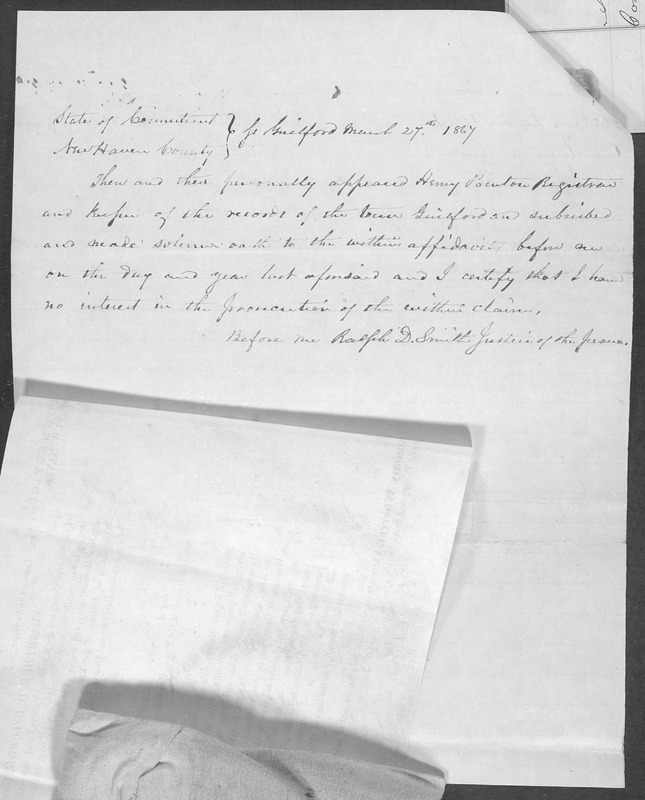 State of Connecticut } ss Guilford March 27.th 1867
New Haven County }
Then and there personally appeared Henry Benton Registrar
and Keeper of the records of the Town Guilford and subscribed
and made solemn oath to the within affidavit before me
on the day and year last aforesaid and I certify that I have
no interest in the prosecution of the within claim.
Before me Ralph D. Smith Justice of the peace.